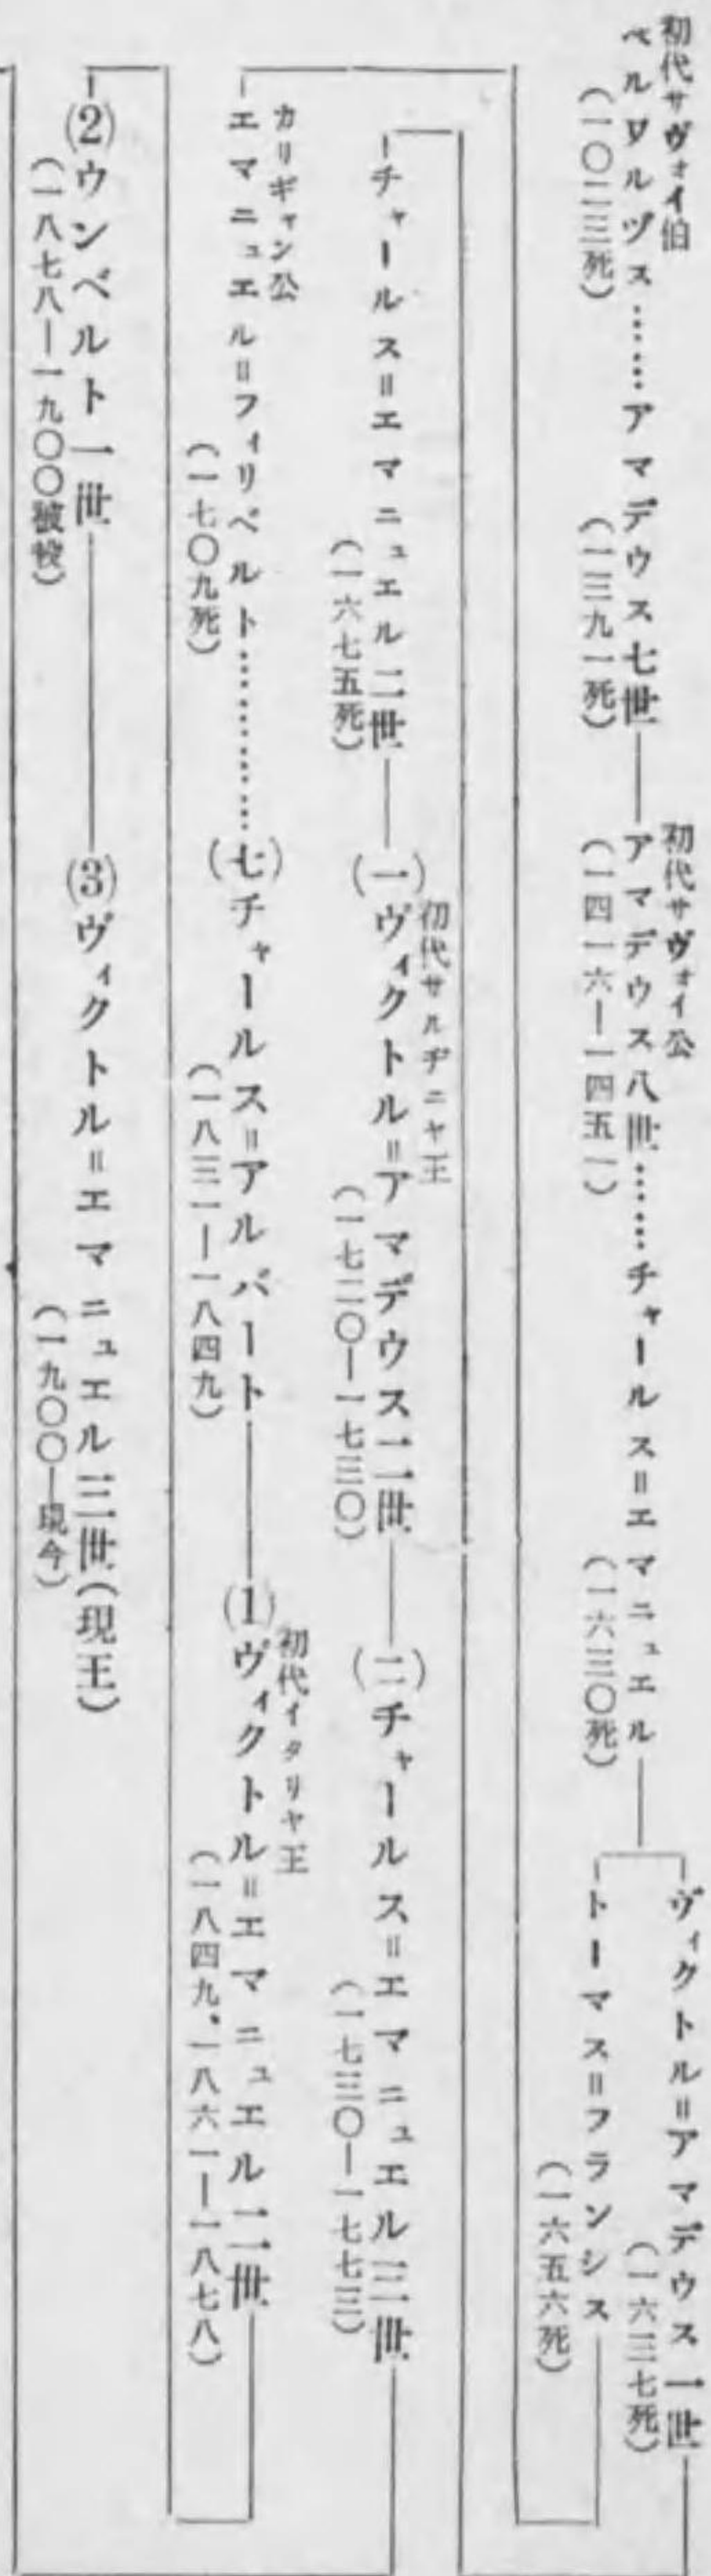 初代サヴォイ伯
ベルワルヅス……アマデウス七世
(一〇二三死)
(一三九一死)
初代サヴォイ公
アマデウス八世……チャールス=エマニュエル
(一四一六—一四五一)
(一六三〇死)
ヴィクトル=アマデウス一世
(一六三七死)
トーマス=フランシス
(一六五六死)
チャールス=エマニュエル二世
(一六七五死)
初代サルヂニヤ王
(一)ヴィクトル=アマデウス二世
(一七二〇—一七三〇)
(二)チャールス=エマニュエル三世
(一七三〇—一七七三)
カリギャン公
エマニュエル=フィリベルト…………
(一七〇九死)
(七)チャールス=アルバート
(一八三一—一八四九)
初代イタリヤ王
(1)ヴィクトル=エマニュエル二世
(一八四九、一八六一—一八七八)
(2)ウンベルト一世
(一八七八—一九〇〇被殺)
(3)ヴィクトル=エマニュエル三世(現王)
(一九〇〇—現今)